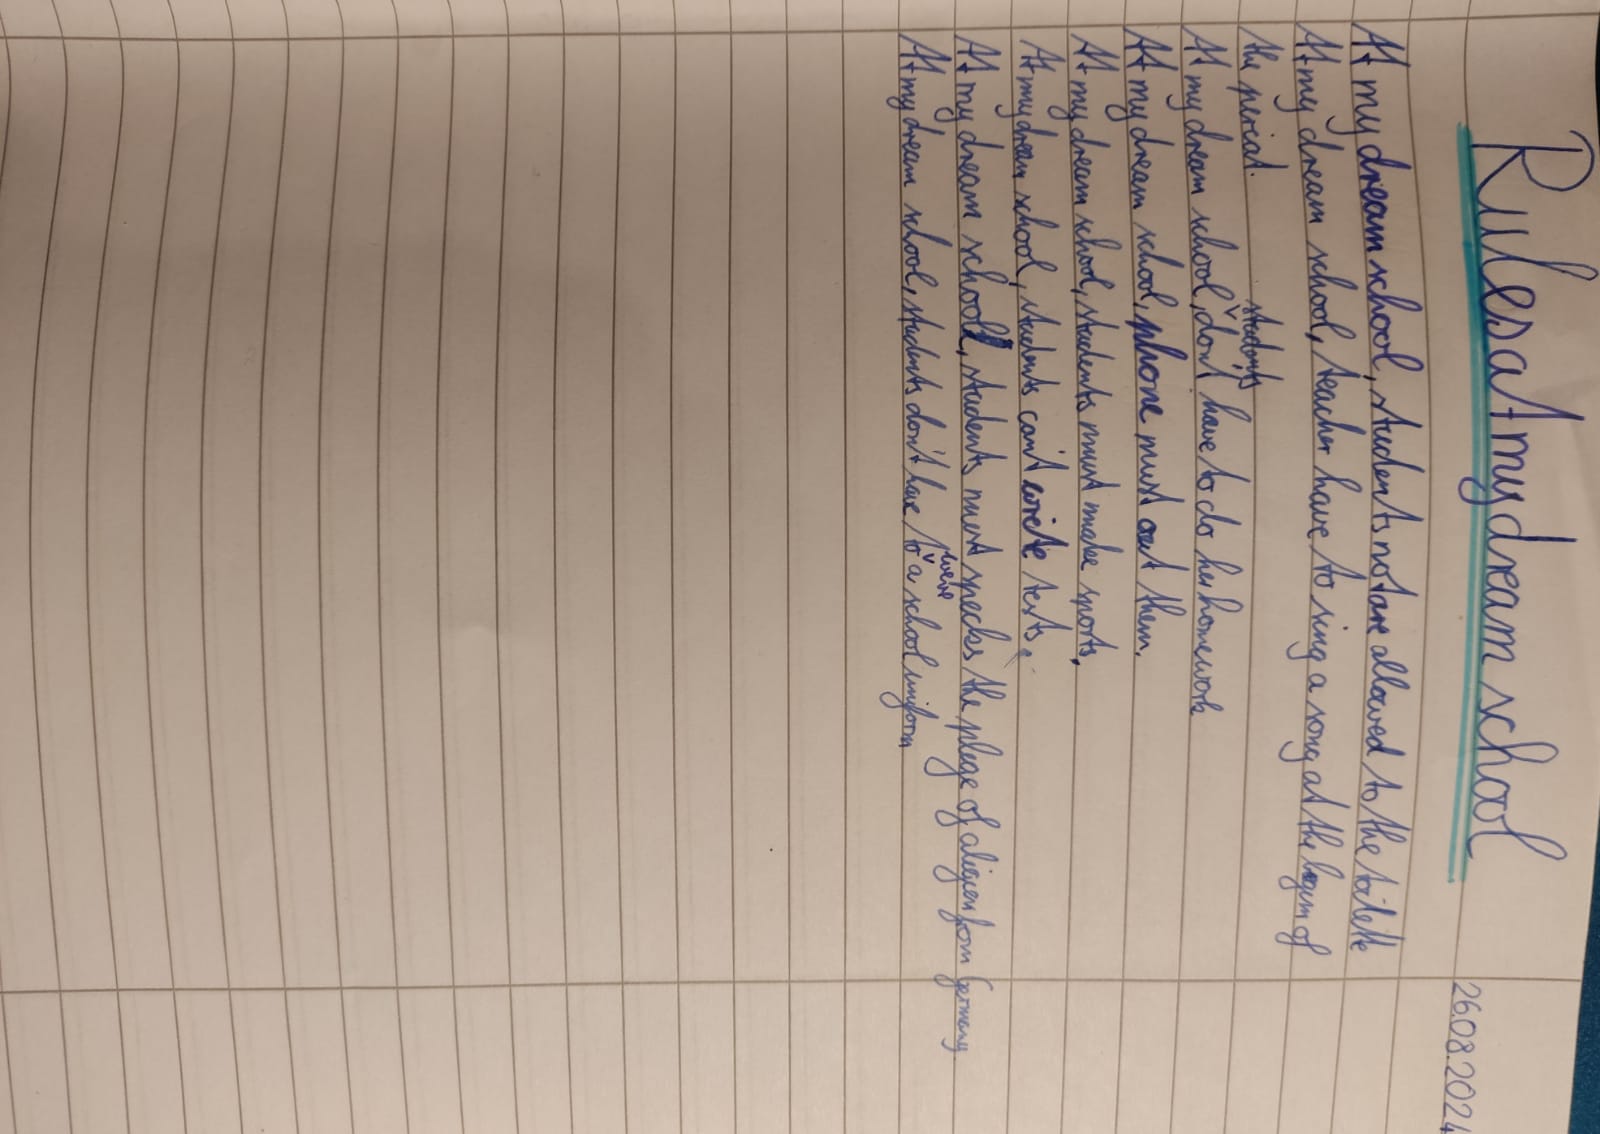 26.08.2024
Rules at my dream school
At my dream school, students not are allowed to the toilette
At my dream school, teacher have to sing a song at the begin of
the periat.
At my dream school, students don't have to do her homework
At my dream school, phone must out them.
At my dream school, students must make sports.
At my dream school, students can't write tests.
At my dream school, students must speckes the plege of aliegen from Germany
At my dream school, students don't have to were a school uniform